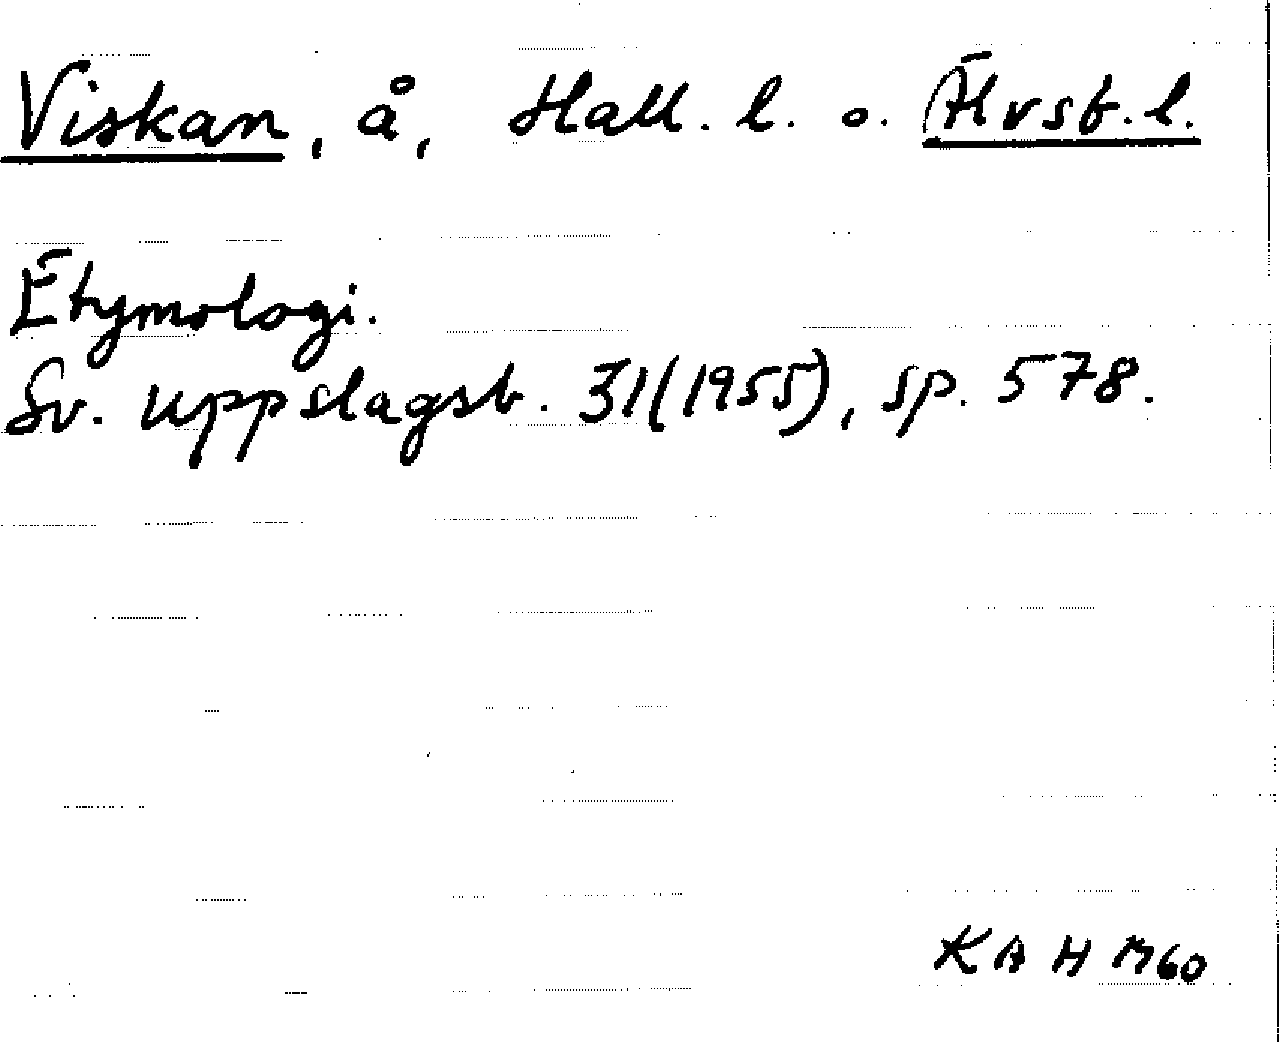 Viskan, å, Hall. l. o. Älvsb. l.
Etymologi.
Sv. uppslagsb. 31(1955), sp. 578.
KAH M60